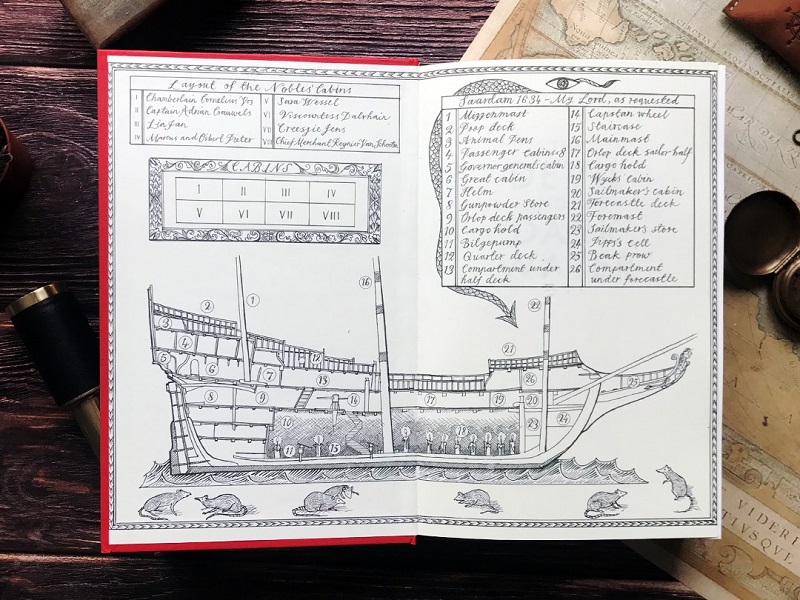 Layout of the Nobles' Cabins
I Chamberlain Cornelius Vos
II Captain Adrian Crauwels
III Lia Jan
IV Marcus and Osbert Pieter
V Sara Wessel
VI Viscountess Dalvhain
VII Creesjie Jens
VIII Chief Merchant Reynier Van Schooten
CABINS
I II III IV
V VI VII VIII
Saardam 1634 - My Lord, as requested
1 Mizzenmast
2 Poop deck
3 Animal Pens
4 Passenger cabins x8
5 Governor general's cabin
6 Great cabin
7 Helm
8 Gunpowder Store
9 Orlop deck passengers
10 Cargo hold
11 Bilgepump
12 Quarter deck
13 Compartment under
half deck
14 Capstan wheel
15 Staircase
16 Mainmast
17 Orlop deck sailor half
18 Cargo hold
19 Wycks cabin
20 Sailmaker's cabin
21 Forecastle deck
22 Foremast
23 Sailmaker's store
24 Pipps's cell
25 Beak prow
26 Compartment
under forecastle
1
2
3
4
5
6
7
8
9
10
11
12
13
14
15
16
17
18
19
20
21
22
23
24
25
26
VIDERI
TIVSQVE